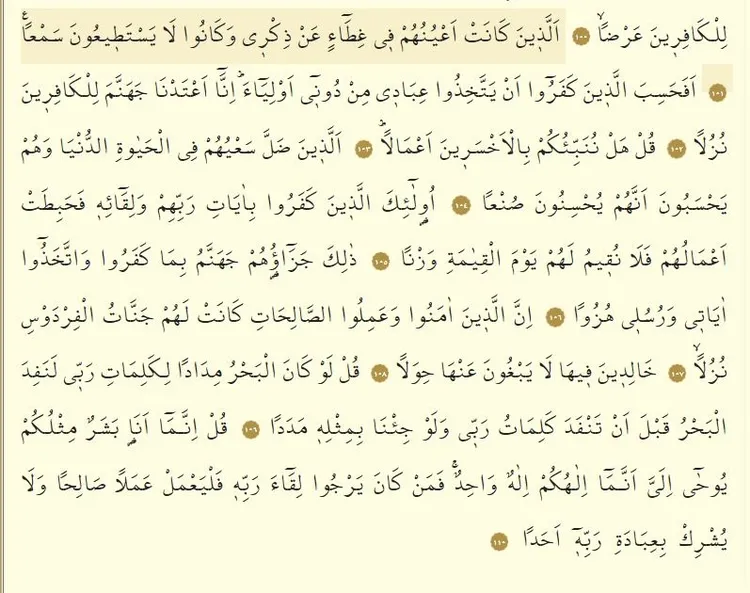 لِلْكَافِر۪ينَ عَرْضًاۙ ﴿١٠٠﴾ اَلَّذ۪ينَ كَانَتْ اَعْيُنُهُمْ ف۪ي غِطَٓاءٍ عَنْ ذِكْر۪ي وَكَانُوا لَا يَسْتَط۪يعُونَ سَمْعًا۟
﴿١٠١﴾ اَفَحَسِبَ الَّذ۪ينَ كَفَرُٓوا اَنْ يَتَّخِذُوا عِبَاد۪ي مِنْ دُون۪ٓي اَوْلِيَٓاءَۜ اِنَّٓا اَعْتَدْنَا جَهَنَّمَ لِلْكَافِر۪ينَ
نُزُلًا ﴿١٠٢﴾ قُلْ هَلْ نُنَبِّئُكُمْ بِالْاَخْسَر۪ينَ اَعْمَالًاۜ ﴿١٠٣﴾ اَلَّذ۪ينَ ضَلَّ سَعْيُهُمْ فِي الْحَيٰوةِ الدُّنْيَا وَهُمْ
يَحْسَبُونَ اَنَّهُمْ يُحْسِنُونَ صُنْعًا ﴿١٠٤﴾ اُو۬لٰٓئِكَ الَّذ۪ينَ كَفَرُوا بِاٰيَاتِ رَبِّهِمْ وَلِقَٓائِه۪ فَحَبِطَتْ
اَعْمَالُهُمْ فَلَا نُق۪يمُ لَهُمْ يَوْمَ الْقِيٰمَةِ وَزْنًا ﴿١٠٥﴾ ذٰلِكَ جَزَٓاؤُ۬هُمْ جَهَنَّمُ بِمَا كَفَرُوا وَاتَّخَذُٓوا
اٰيَات۪ي وَرُسُل۪ي هُزُوًا ﴿١٠٦﴾ اِنَّ الَّذ۪ينَ اٰمَنُوا وَعَمِلُوا الصَّالِحَاتِ كَانَتْ لَهُمْ جَنَّاتُ الْفِرْدَوْسِ
نُزُلًاۙ ﴿١٠٧﴾ خَالِد۪ينَ ف۪يهَا لَا يَبْغُونَ عَنْهَا حِوَلًا ﴿١٠٨﴾ قُلْ لَوْ كَانَ الْبَحْرُ مِدَادًا لِكَلِمَاتِ رَبّ۪ي لَنَفِدَ
الْبَحْرُ قَبْلَ اَنْ تَنْفَدَ كَلِمَاتُ رَبّ۪ي وَلَوْ جِئْنَا بِمِثْلِه۪ مَدَدًا ﴿١٠٩﴾ قُلْ اِنَّمَٓا اَنَا۬ بَشَرٌ مِثْلُكُمْ
يُوحٰٓى اِلَيَّ اَنَّمَٓا اِلٰهُكُمْ اِلٰهٌ وَاحِدٌۚ فَمَنْ كَانَ يَرْجُوا لِقَٓاءَ رَبِّه۪ فَلْيَعْمَلْ عَمَلًا صَالِحًا وَلَا
يُشْرِكْ بِعِبَادَةِ رَبِّه۪ٓ اَحَدًا ﴿١١٠﴾